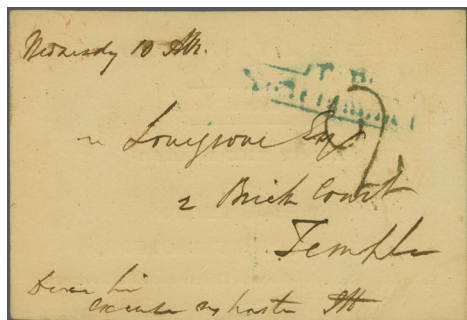 Wednesday 10
T.P.
Lovegrove Esq
2 Brick Court
Temple
Dear Sir
excuse my haste